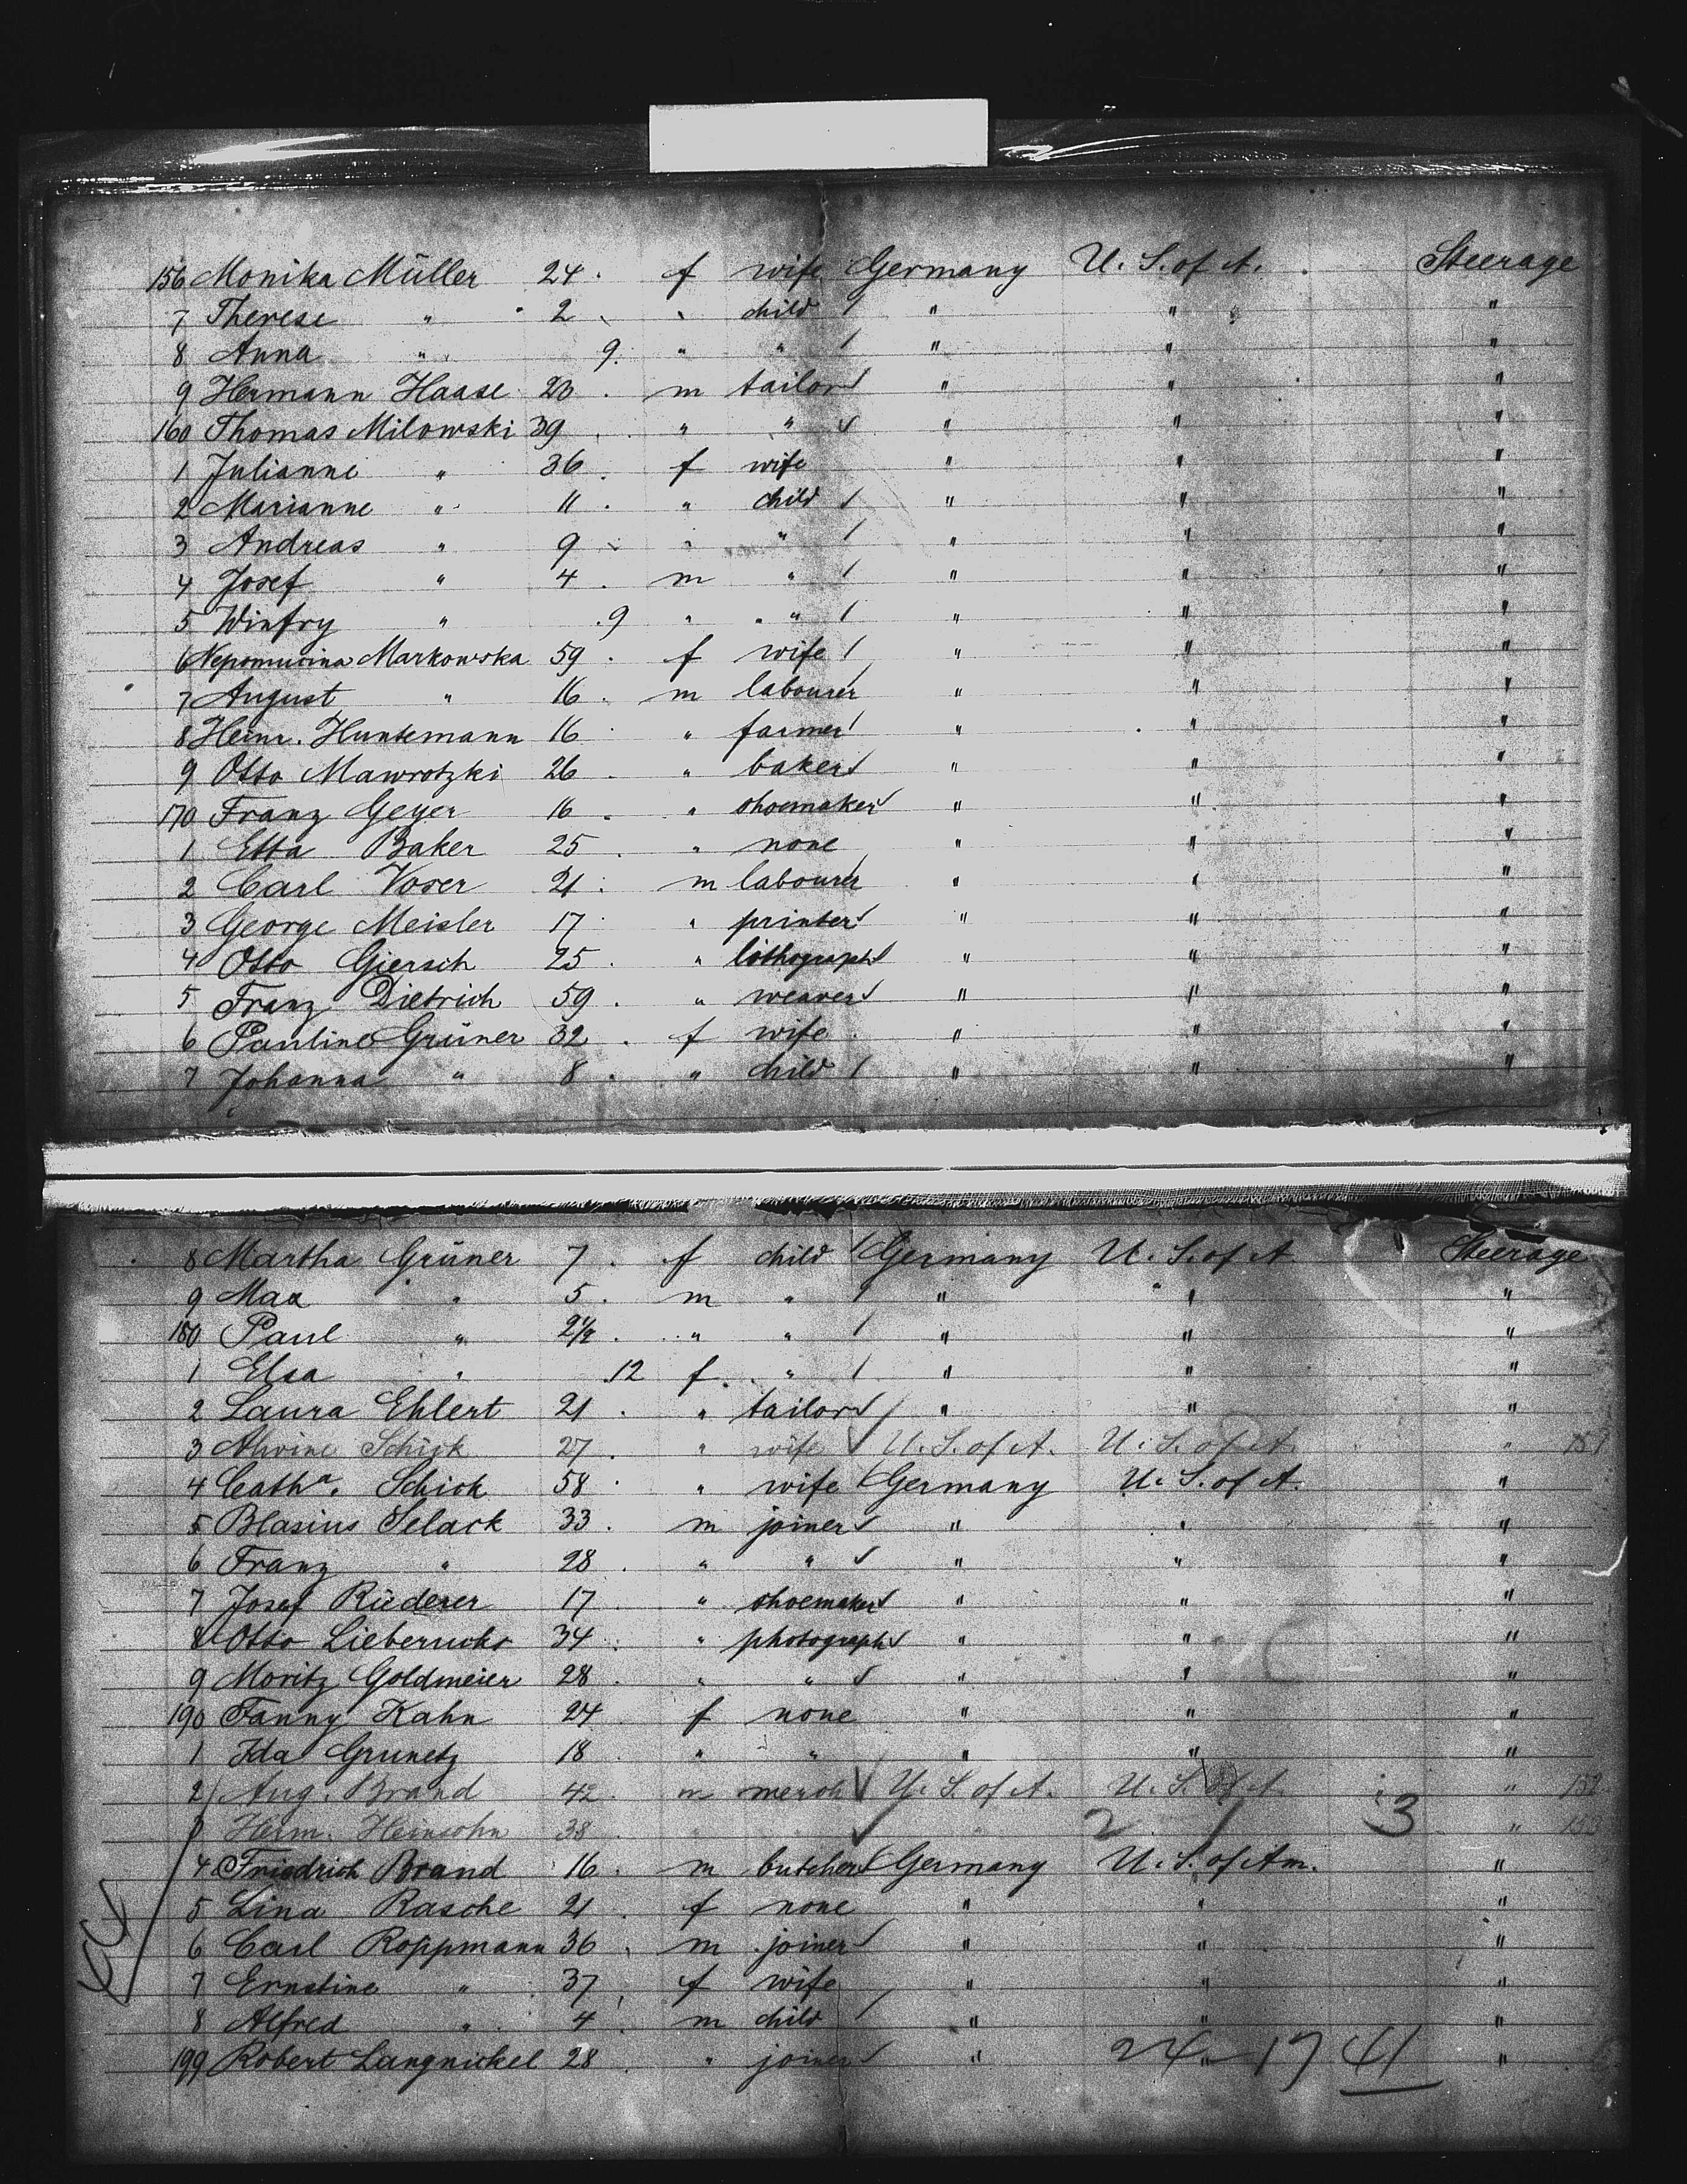 156 Monika Müller 24 . f wife Germany U. S. of A. Steerage
7 Therese " 2 " child / " " "
8 Anna " 9. " " / " " "
9 Hermann Haase 20 . m tailor ✓ " " "
160 Thomas Milowski 39 . " " ✓ " " "
1 Julianne " 36 . f wife " " "
2 Marianne " 11 . " child / " " "
3 Andreas " 9 . " " / " " "
4 Josef " 4 . m " / " " "
5 Winfry " .9 " " / " " "
6 Nepomucina Markowska 59 . f wife / " " "
7 August " 16 . m labourer " " "
8 Heinr. Huntemann 16 . " farmer / " " "
9 Otto Mawrotzki 26 . " baker ✓ " " "
170 Franz Geyer 16 . " shoemaker ✓ " " "
1 Etta Baker 25 . " none " " "
2 Carl Voser 21 . m labourer " " "
3 George Meisler 17 . " printer ✓ " " "
4 Otto Giersch 25 . " lithograph ✓ " " "
5 Franz Dietrich 59 . " weaver ✓ " " "
6 Pauline Grüner 32 . f wife " " "
7 Johanna " 8 . " child / " " "
8 Martha Grüner 7 . f child / Germany U. S. of A. Steerage
9 Max " 5 . m " / " " "
180 Paul " 2½ . " " / " " "
1 Elsa " .12 f " / " " "
2 Laura Ehlert 21 . " tailor ✓ " " "
3 Alwine Schick 27 . " wife ✓ U. S. of A. U. S. of A. " 151
4 Cathª. Schick 58 . " wife / Germany U. S. of A. "
5 Blasius Selack 33 . m joiner ✓ " " "
6 Franz " 28 . " " ✓ " " "
7 Josef Rüederer 17 " shoemaker ✓ " " "
8 Otto Lieberucks 34 . " photograph ✓ " " "
9 Moritz Goldmeier 28 . " " ✓ " " "
190 Fanny Kahn 24 f none " " "
1 Ida Grunetz 18 . " " " " "
2 Aug. Brand 42 m merch ✓ U. S. of A. U. S. of A. " 152
3 Herm. Heinsohn 38 " " ✓ " 2 / 3 " 153
4 Friedrich Brand 16 . m butcher ✓ Germany U. S. of Am. "
5 Lina Rasche 21 . f none " " "
6 Carl Roppmann 36 . m joiner ✓ " " "
7 Ernstine " 37 . f wife " " "
8 Alfred " 4 . m child / " " "
199 Robert Langnickel 28 . " joiner ✓ " " "
24 17 41